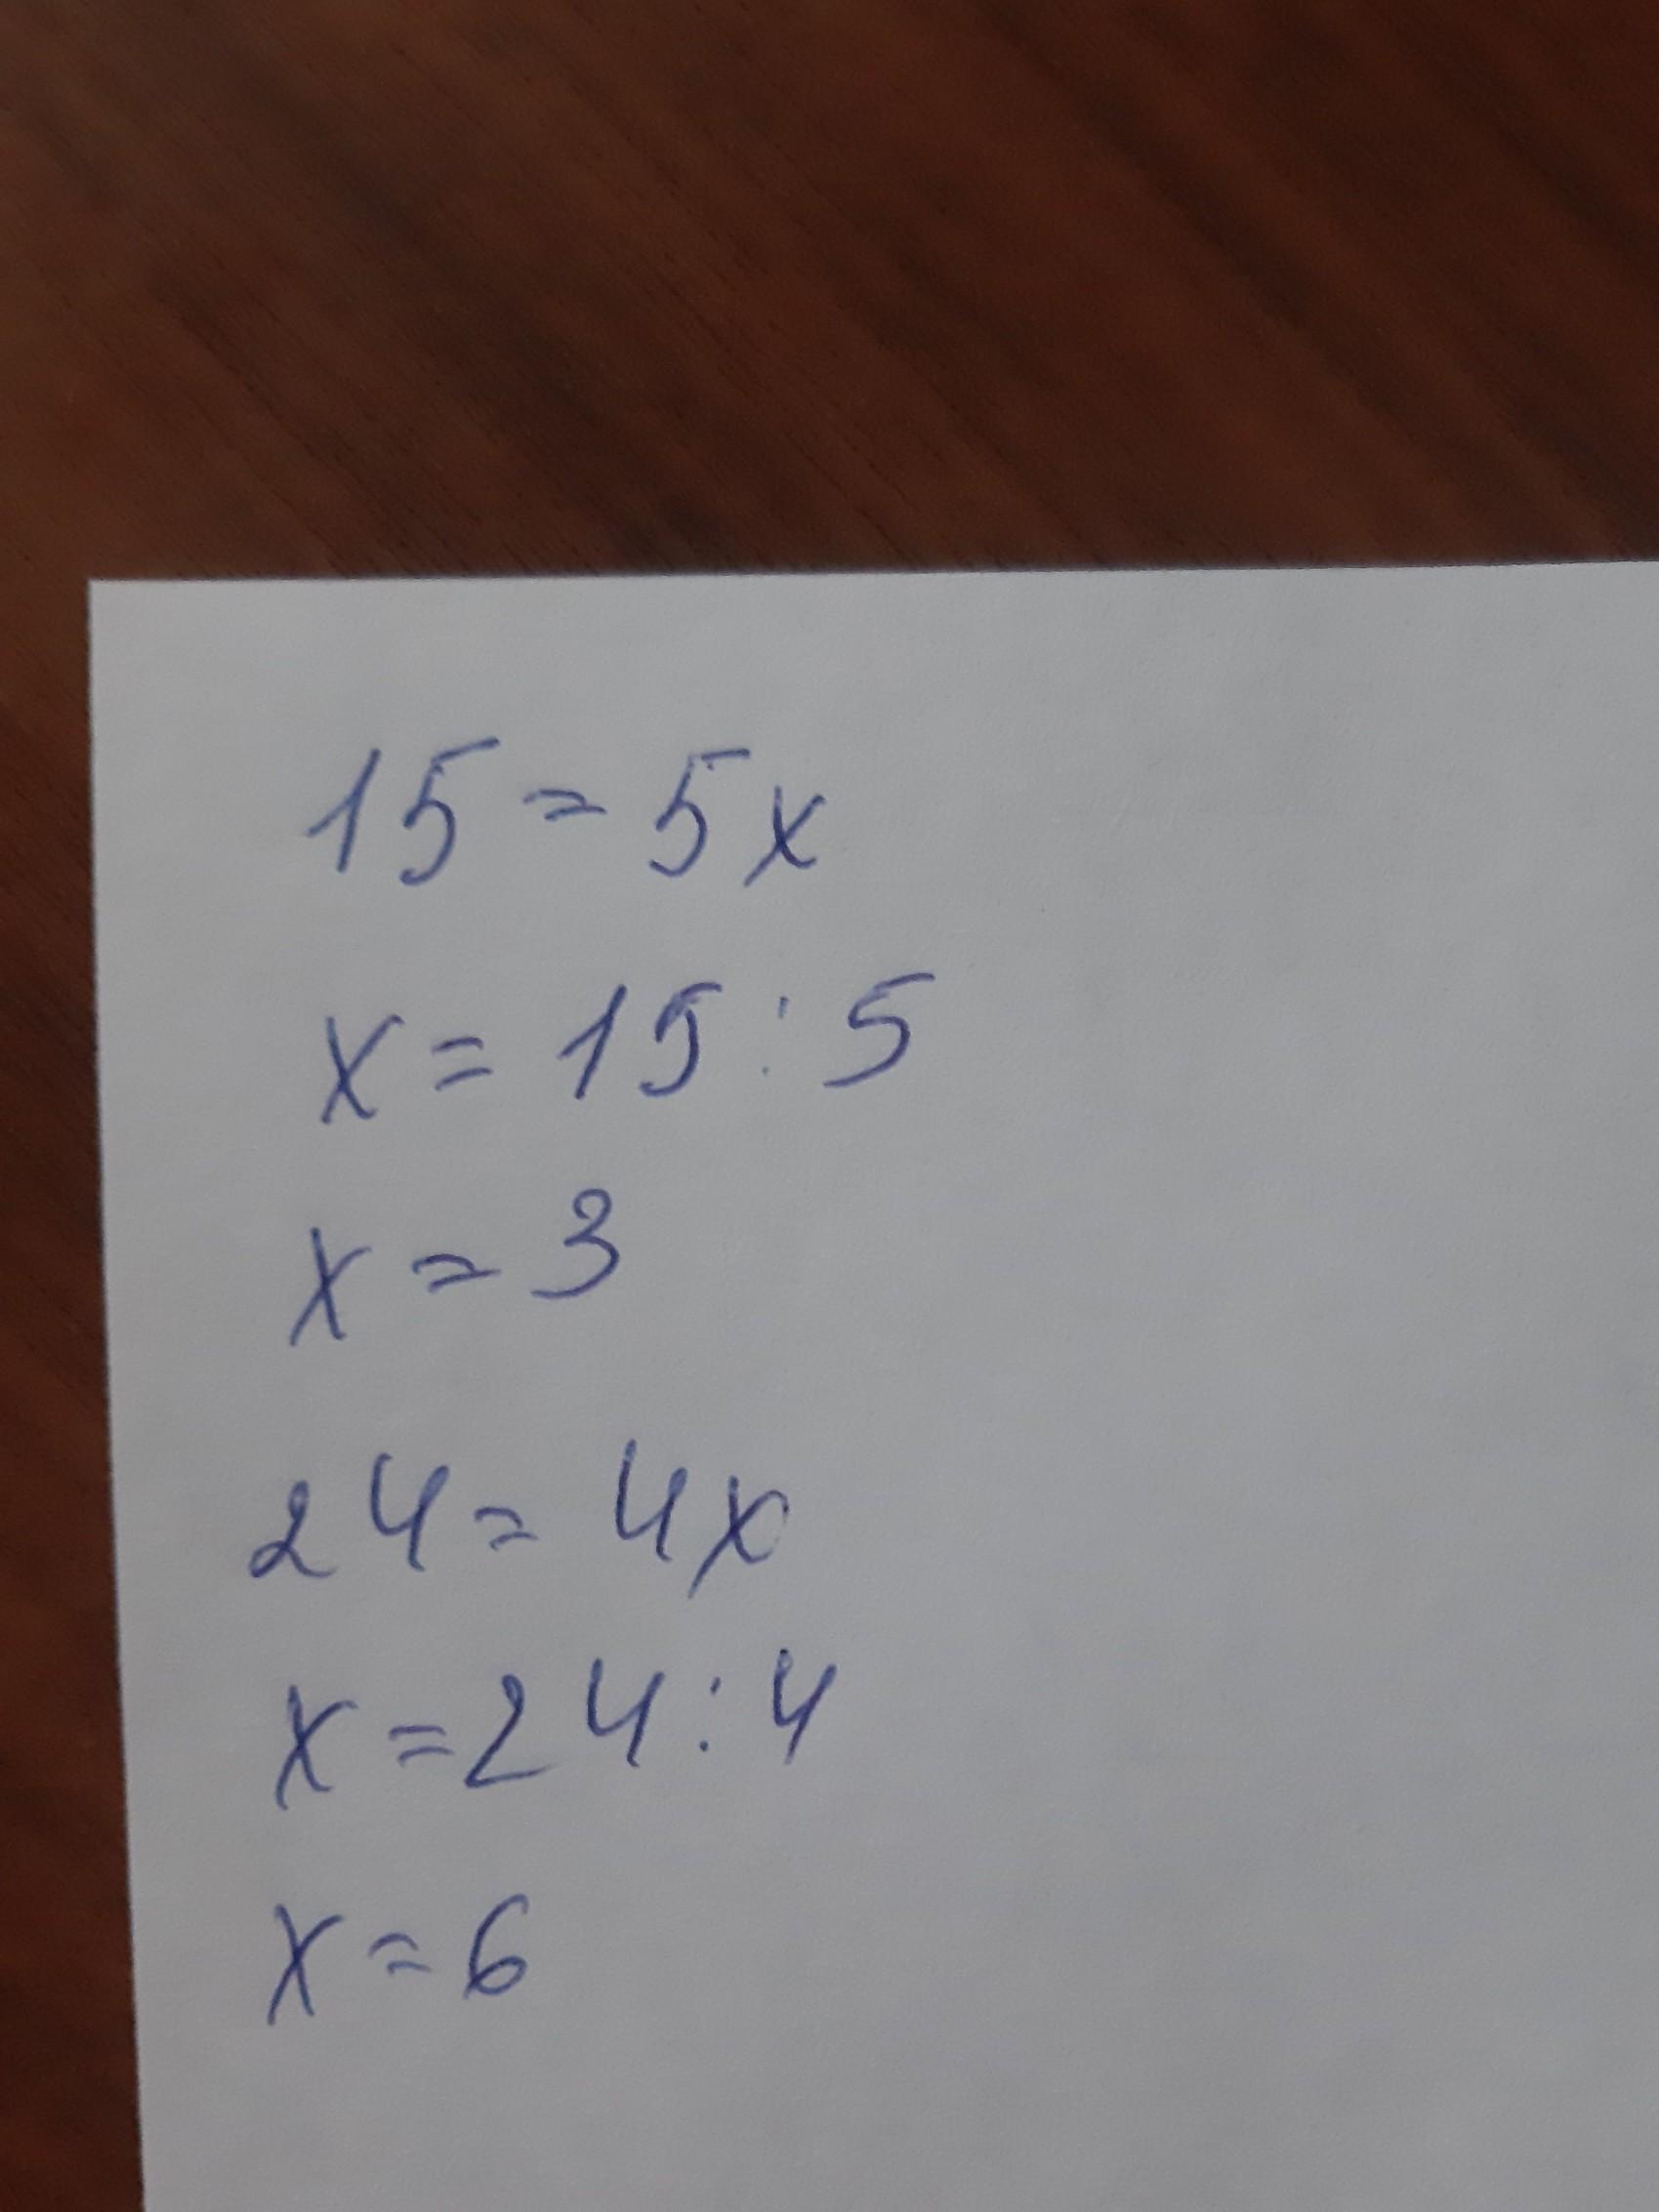 15=5x
x=15:5
x=3
24=4x
x=24:4
x=6